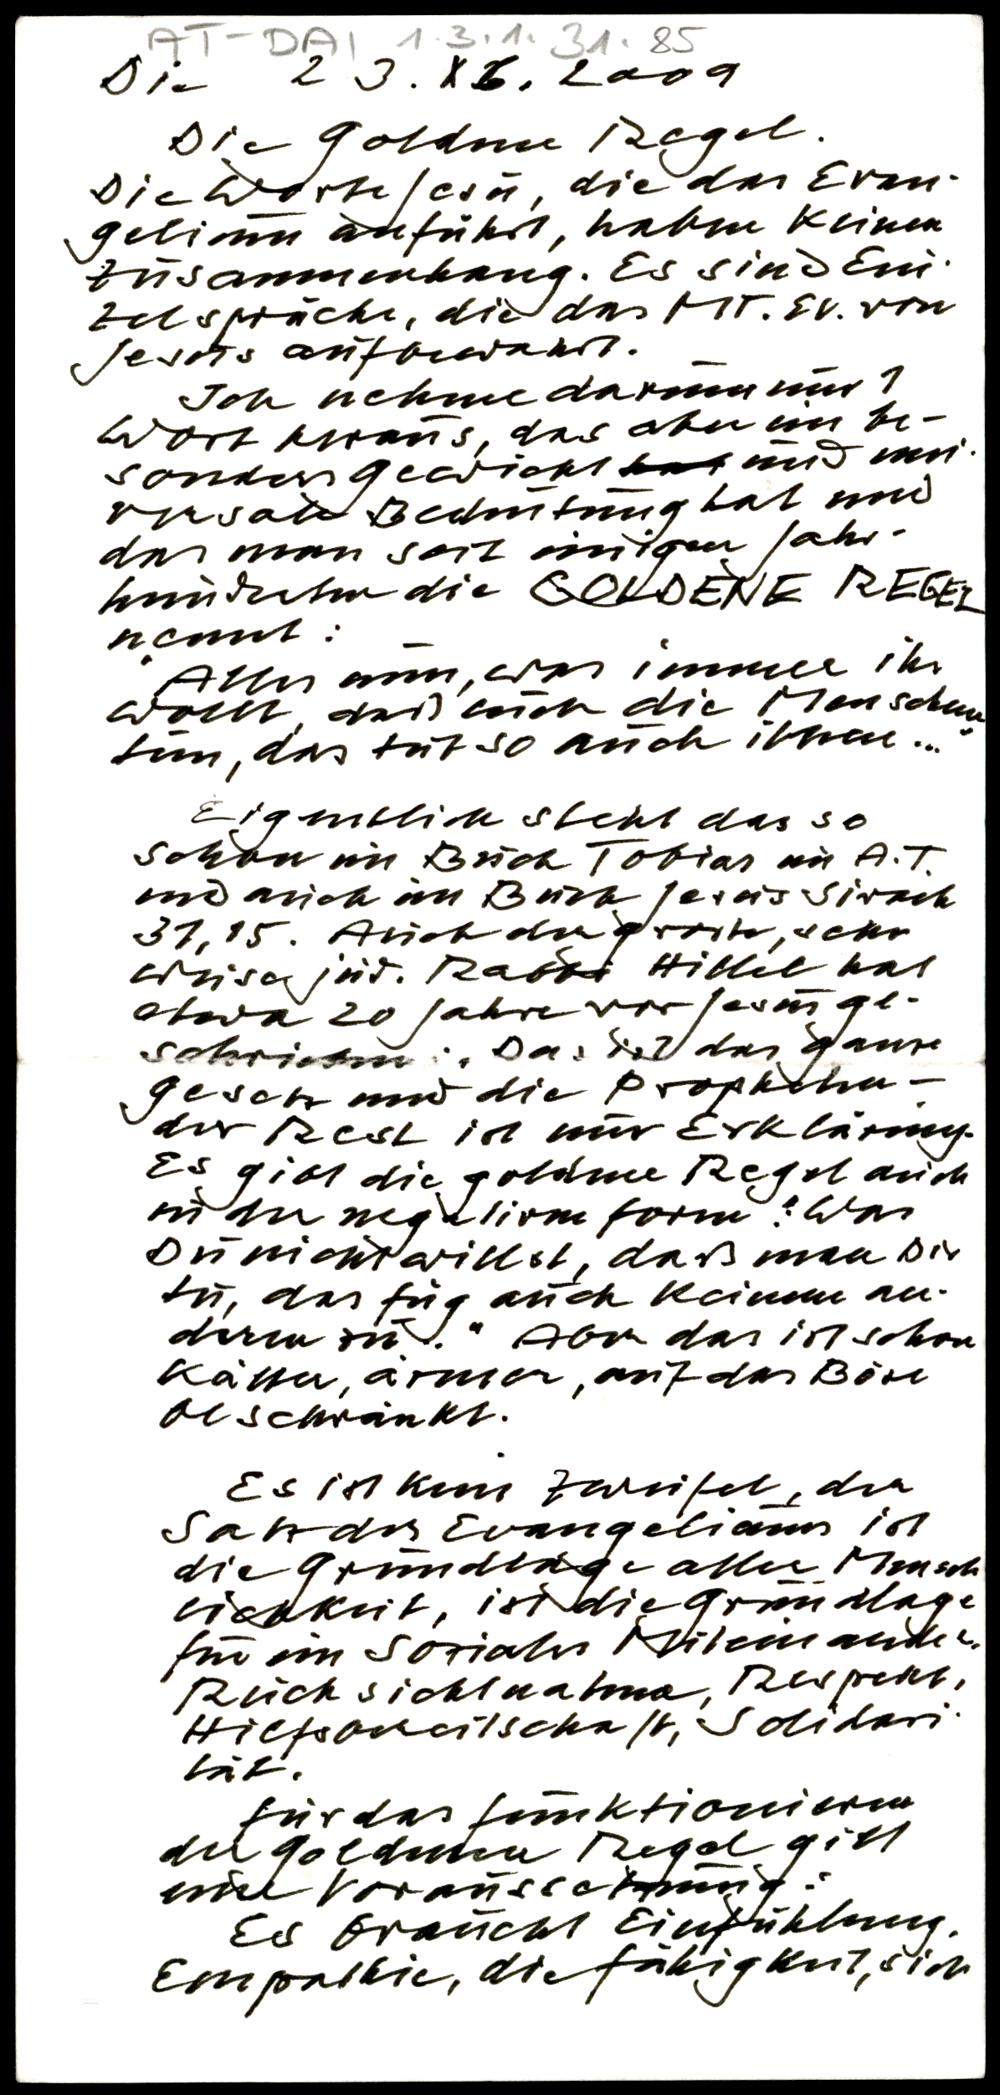 AT-DAI 1.3.1.31.85
Die 23. XI. 2009
Die Goldene Regel.
Die Worte Jesu, die das Evan-
gelium anführt, haben keinen
Zusammenhang. Es sind Ein-
zelsprüche, die das MT. Ev. von
Jesus aufbewahrt.
Ich nehme darum nur 1
Wort heraus, das aber ein be-
sonders Gewicht hat und uni-
versale Bedeutung hat und
das man seit einigen Jahr-
hunderten die GOLDENE REGEL
nennt:
"Alles nun, was immer ihr
wollt, daß euch die Menschen
tun, das tut so auch ihnen..."
Eigentlich steht das so
schon im Buch Tobias im A.T.
und auch im Buch Jesus Sirach
31,15. Auch der große, sehr
weise jüd. Rabbi Hillel hat
etwa 20 Jahre vor Jesus ge-
schrieben: Das ist das ganze
Gesetz und die Propheten -
der Rest ist nur Erklärung.
Es gibt die goldene Regel auch
in der negativen Form: "Was
Du nicht willst, daß man Dir
tu, das füg auch keinem an-
deren zu." Aber das ist schon
kälter, ärmer, auf das Böse
beschränkt.
Es ist kein Zweifel, der
Satz des Evangeliums ist
die Grundlage aller Mensch
lichkeit, ist die Grundlage
für ein Soziales Miteinander.
Rücksichtnahme, Respekt,
Hilfsbereitschaft, Solidari-
tät.
Für das Funktionieren
der Goldenen Regel gilt
eine Voraussetzung:
Es braucht Einfühlung,
Empathie, die Fähigkeit, sich